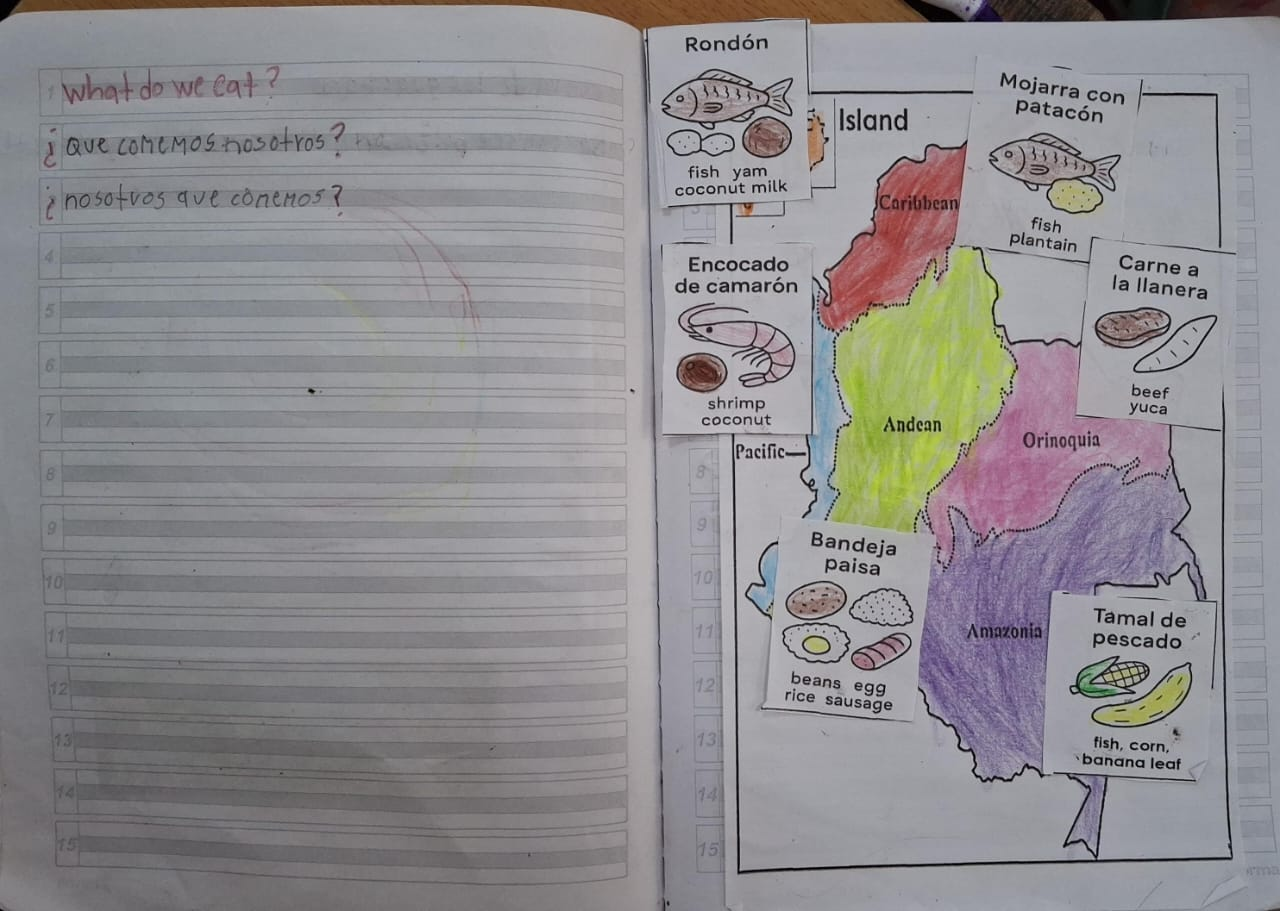 1 What do we eat?
¿Que comemos nosotros?
¿nosotros que comemos?
4
5
6
7
8
9
10
11
12
13
14
15
Rondón
fish yam
coconut milk
Island
Mojarra con
patacón
fish
plantain
Caribbean
Encocado
de camarón
shrimp
coconut
Carne a
la llanera
beef
yuca
Andean
Orinoquia
Pacific
Bandeja
paisa
beans egg
rice sausage
Amazonia
Tamal de
pescado
fish, corn,
banana leaf
3
8
9
10
11
12
13
14
15